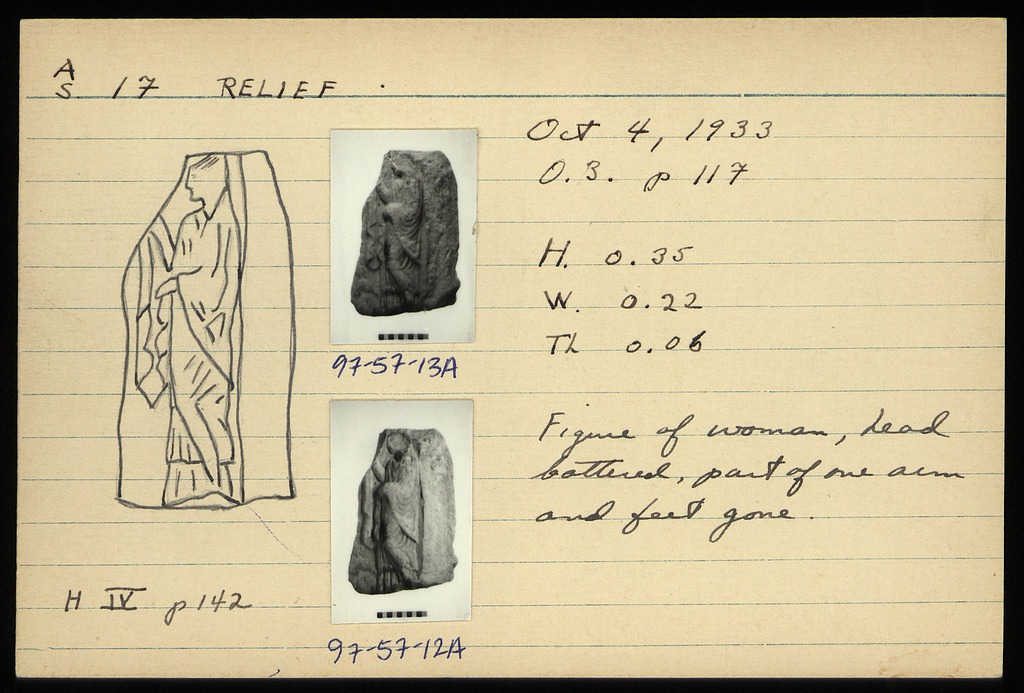 A
S 17 RELIEF .
Oct 4, 1933
O.B. p 117
H. 0.35
W. 0.22
Th 0.06
97-57-13A
Figure of woman, head
battered, part of one arm
and feet gone.
H IV p 142
97-57-12A